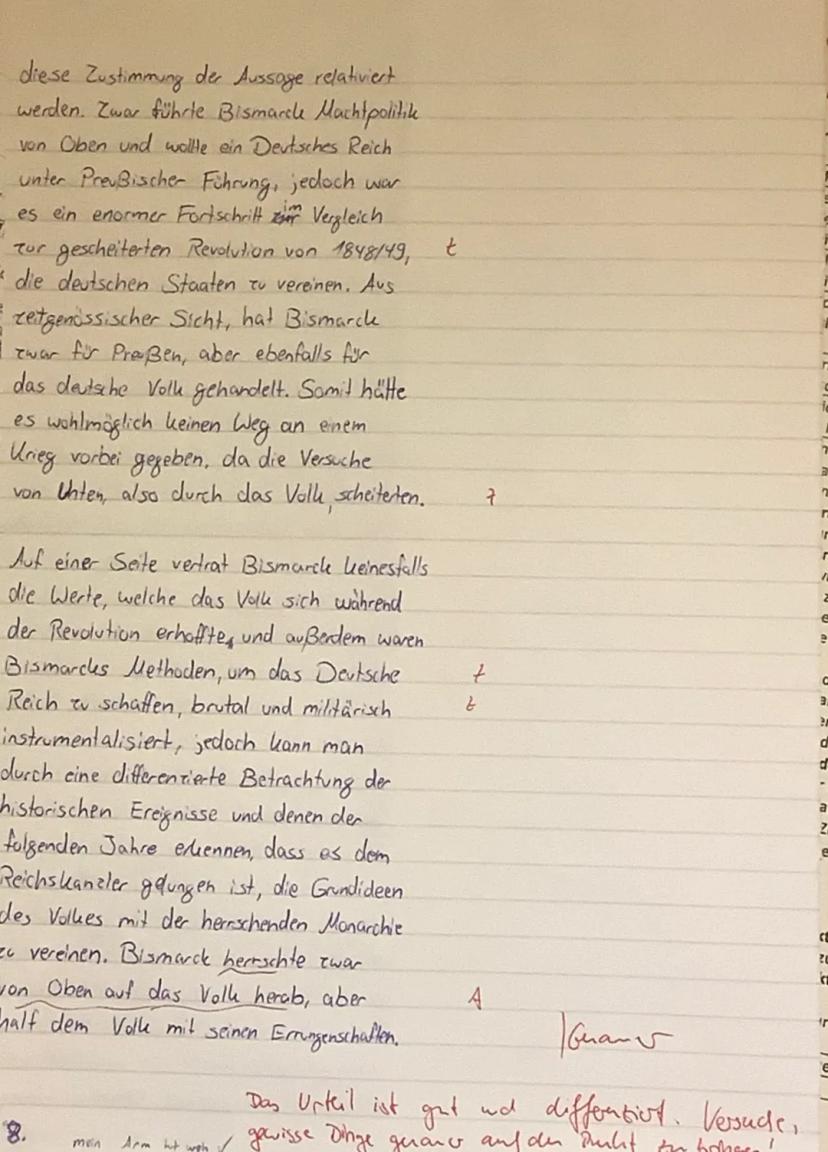 diese Zustimmung der Aussage relativiert
werden. Zwar führte Bismarck Machtpolitik
von Oben und wollte ein Deutsches Reich
unter Preußischer Führung, jedoch war
es ein enormer Fortschritt im Vergleich
zur gescheiterten Revolution von 1848/49, t
die deutschen Staaten zu vereinen. Aus
zeitgenössischer Sicht, hat Bismarck
zwar für Preußen, aber ebenfalls für
das deutsche Volk gehandelt. Somit hätte
es wohlmöglich keinen Weg an einem
Krieg vorbei gegeben, da die Versuche
von Unten, also durch das Volk, scheiterten. 7
Auf einer Seite vertrat Bismarck keinesfalls
die Werte, welche das Volk sich während
der Revolution erhoffte, und außerdem waren
Bismarcks Methoden, um das Deutsche t
Reich zu schaffen, brutal und militärisch t
instrumentalisiert, jedoch kann man
durch eine differenzierte Betrachtung der
historischen Ereignisse und denen der
folgenden Jahre erkennen, dass es dem
Reichskanzler gelungen ist, die Grundideen
des Volkes mit der herrschenden Monarchie
zu vereinen. Bismarck herrschte zwar
von Oben auf das Volk herab, aber A
half dem Volk mit seinen Errungenschaften. Genauer
Das Urteil ist gut und differenziert. Versuche,
8. mein Arm tut weh gewisse Dinge genauer auf den Punkt zu bringen!